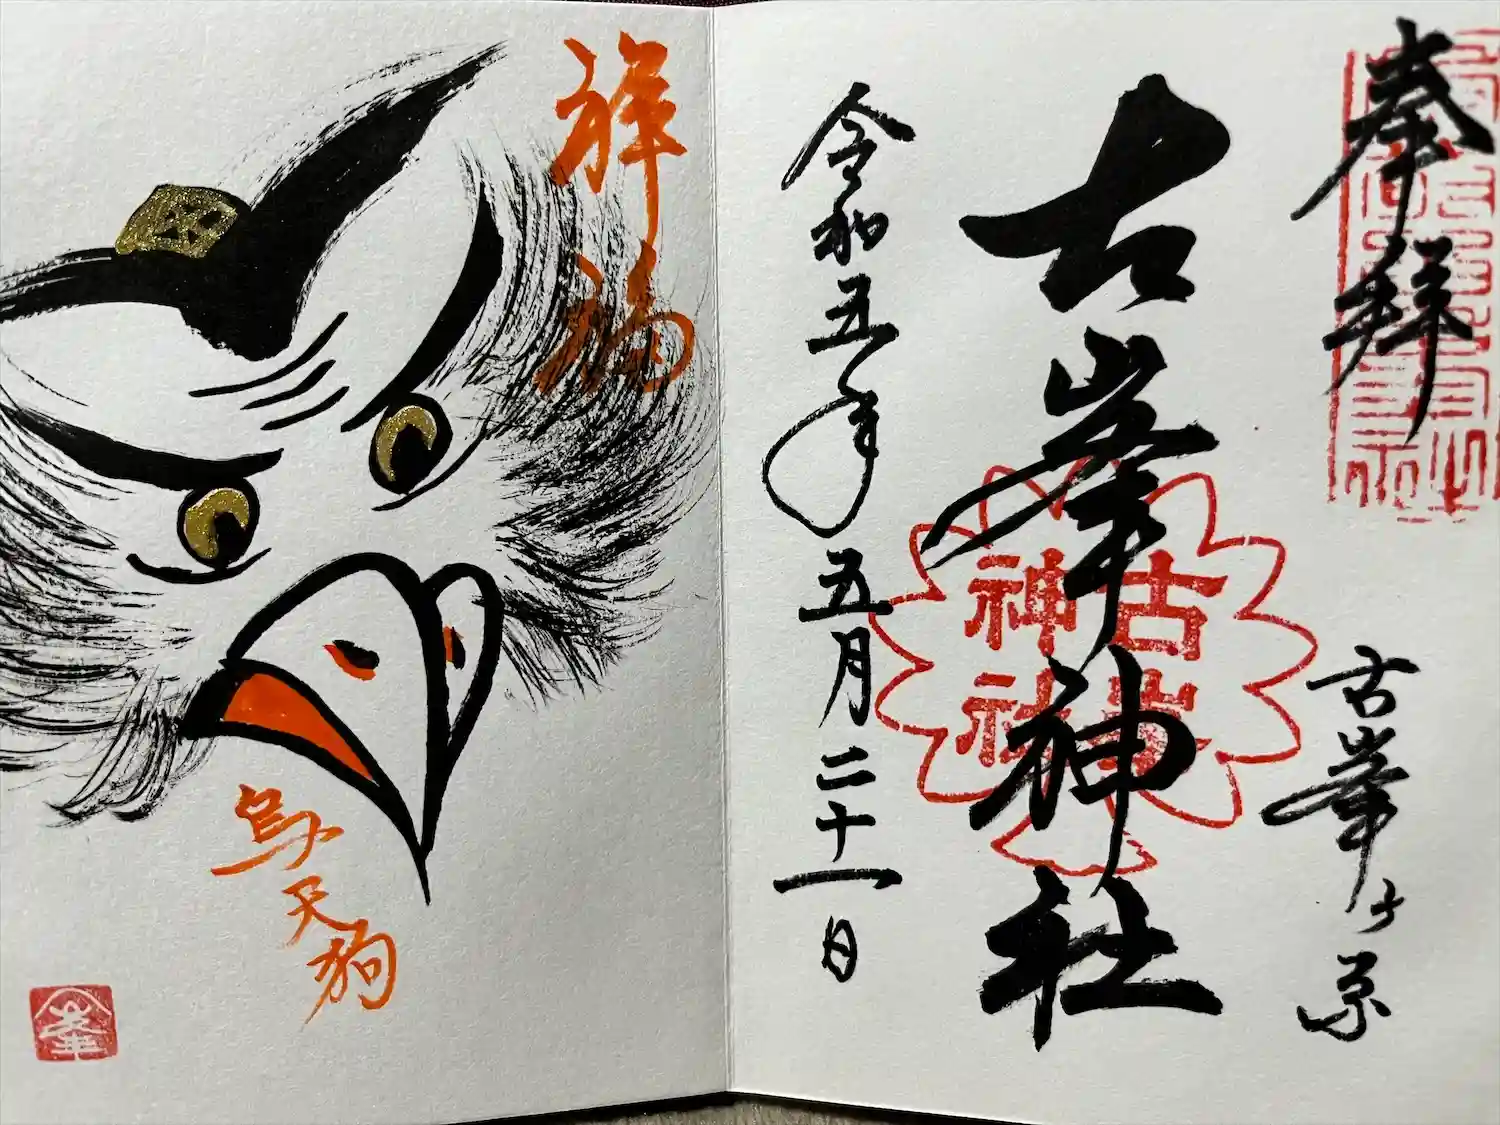 奉拝
古峯ヶ原
古峯神社
古峯
神社
令和五年五月二十一日
祥福
烏天狗
峯